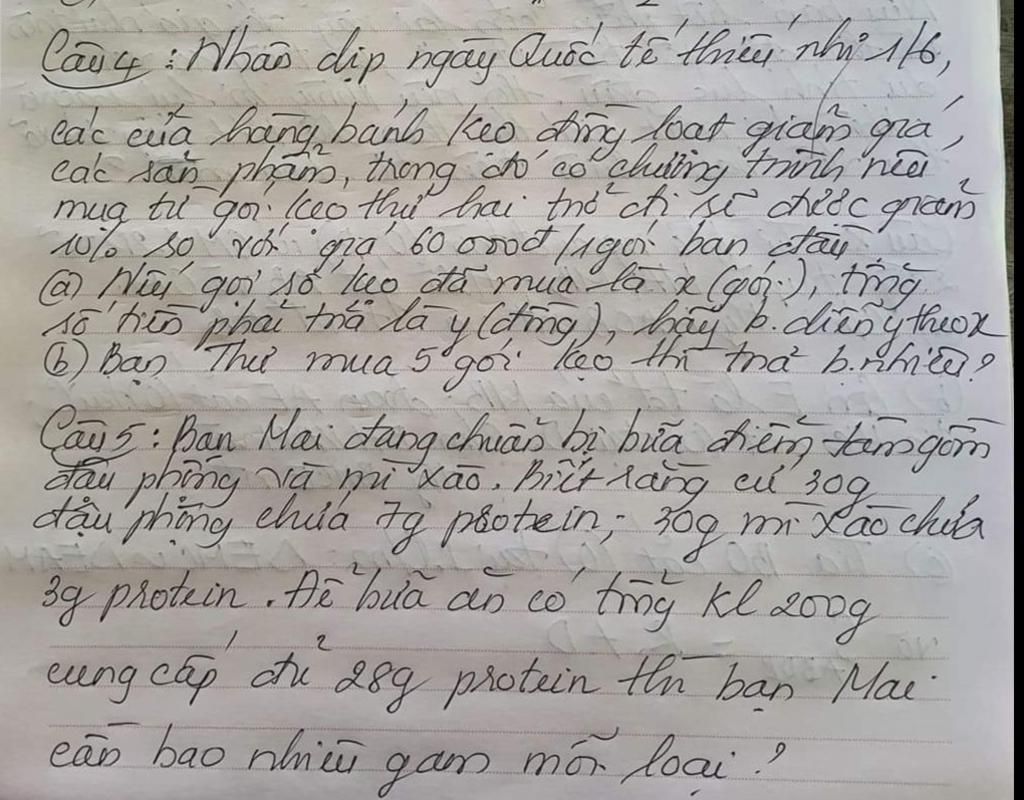 Câu 4 : Nhân dịp ngày Quốc tế thiếu nhi 1/6,
các cửa hàng bánh kẹo đồng loạt giảm giá
các sản phẩm, trong đó có chương trình nếu
mua từ gói kẹo thứ hai trở đi sẽ được giảm
10% so với giá 60 000đ/1gói ban đầu
(a) Nếu gọi số kẹo đã mua là x (gói), tổng
số tiền phải trả là y (đồng), hãy b.diễn y theo x
(b) Bạn Thư mua 5 gói kẹo thì trả b.nhiêu?
Câu 5 : Bạn Mai đang chuẩn bị bữa điểm tâm gồm
đậu phộng và mì xào. Biết rằng cứ 30g
đậu phộng chứa 7g protein; 30g mì xào chứa
3g protein. Để bữa ăn có tổng KL 200g
cung cấp đủ 28g protein thì bạn Mai
cần bao nhiêu gam mỗi loại ?